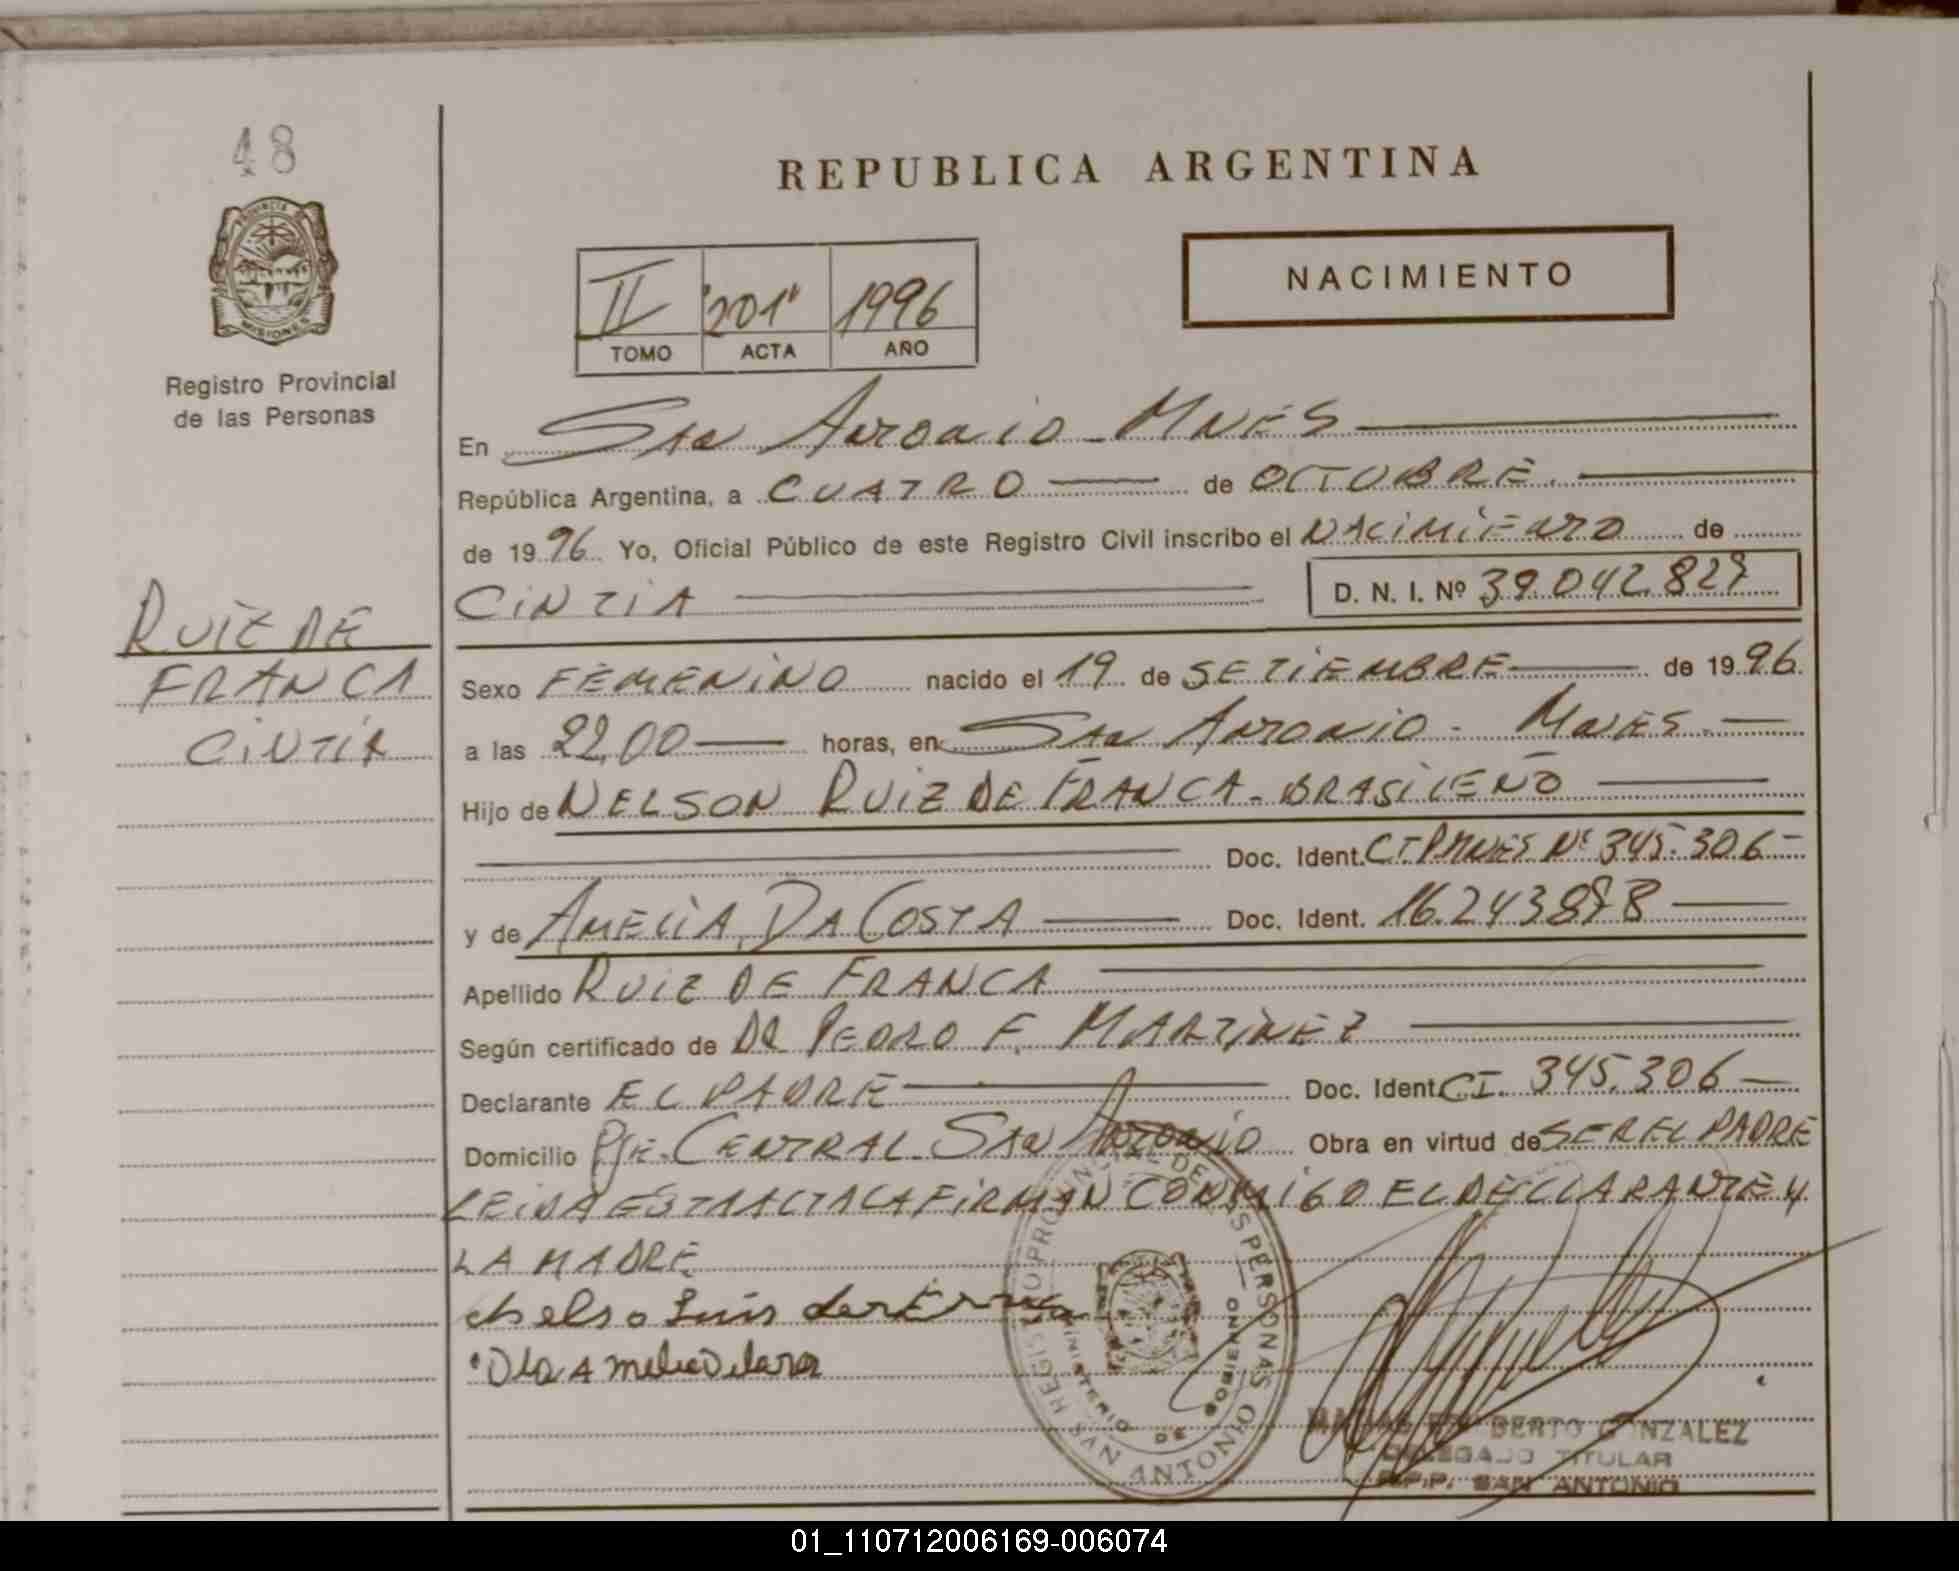 48
REPUBLICA ARGENTINA
PROVINCIA DE
MISIONES
Registro Provincial
de las Personas
NACIMIENTO
II "201" 1996
TOMO ACTA AÑO
En San Antonio - Mnes
República Argentina, a CUATRO de OCTUBRE.
de 1996 Yo, Oficial Público de este Registro Civil inscribo el NACIMIENTO de
CINTIA D. N. I. Nº 39.042.827
RUIZ DE
FRANCA
CINTIA
Sexo FEMENINO nacido el 19 de SETIEMBRE de 1996.
a las 22,00 horas, en San Antonio - Mnes.
Hijo de NELSON RUIZ DE FRANCA - BRASILEÑO
Doc. Ident. Nº 345.306
y de AMELIA DA COSTA Doc. Ident. 16.243.878
Apellido RUIZ DE FRANCA
Según certificado de DR PEDRO F. MARTINEZ
Declarante EL PADRE Doc. Ident. CI. 345.306
Domicilio Pje. CENTRAL San Antonio Obra en virtud de SER EL PADRE
LEIDA ESTA ACTA LA FIRMAN CONMIGO EL DECLARANTE Y
LA MADRE
REGISTRO PROVINCIAL DE LAS PERSONAS
MINISTERIO DE GOBIERNO
SAN ANTONIO
BERTO GONZALEZ
DELEGADO TITULAR
R.P.P. SAN ANTONIO
01_110712006169-006074